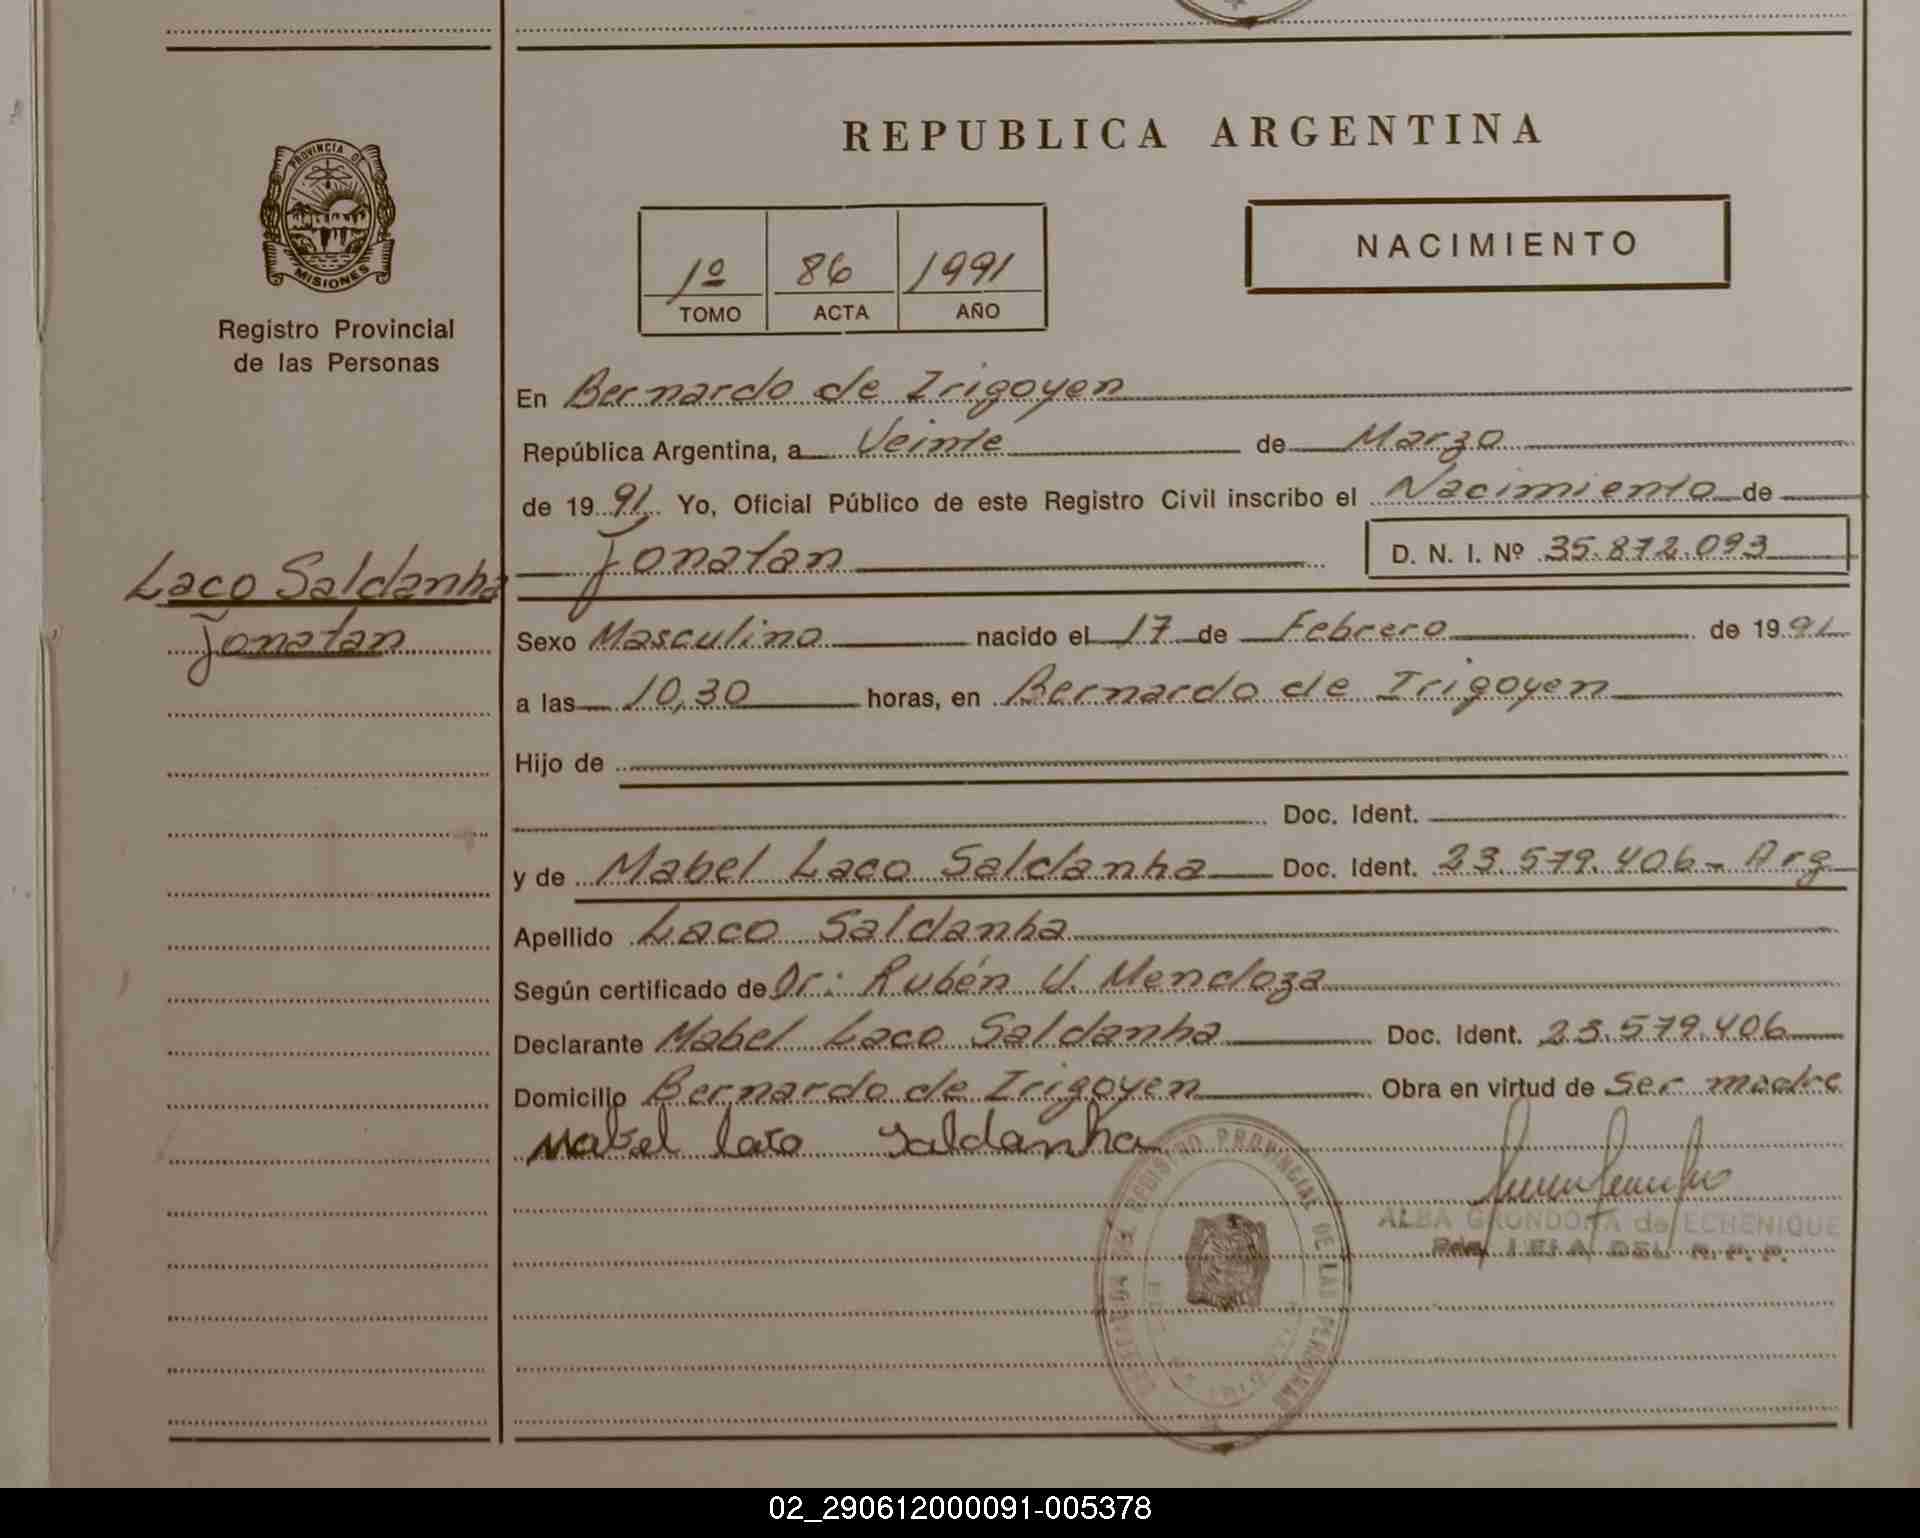 PROVINCIA DE
MISIONES
Registro Provincial
de las Personas
Laco Saldanha
Jonatan
REPUBLICA ARGENTINA
1º 86 1991
TOMO ACTA AÑO
NACIMIENTO
En Bernardo de Irigoyen
República Argentina, a Veinte de Marzo
de 1991. Yo, Oficial Público de este Registro Civil inscribo el Nacimiento de
Jonatan D. N. I. Nº 35.872.093
Sexo Masculino nacido el 17 de Febrero de 1991
a las 10,30 horas, en Bernardo de Irigoyen
Hijo de
Doc. Ident.
y de Mabel Laco Saldanha Doc. Ident. 23.579.406- Arg
Apellido Laco Saldanha
Según certificado de Dr: Rubén V. Mendoza
Declarante Mabel Laco Saldanha Doc. Ident. 23.579.406
Domicilio Bernardo de Irigoyen Obra en virtud de ser madre
Mabel Laco Saldanha
REGISTRO PROVINCIAL DE LAS PERSONAS
ALBA GRONDONA de ECHENIQUE
DEL R. P. P.
02_290612000091-005378